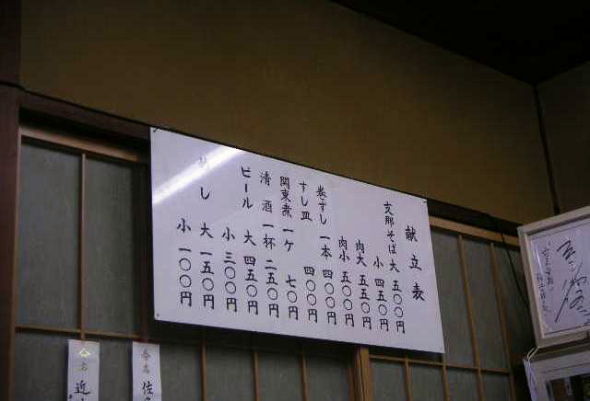 献立表
支那そば 大 五〇〇円
小 四五〇円
肉大 五五〇円
肉小 五〇〇円
巻すし 一本 四〇〇円
すし皿 四〇〇円
関東煮 一ケ 七〇円
清酒 一杯 二五〇円
ビール 大 四五〇円
小 三〇〇円
めし 大 一五〇円
小 一〇〇円
近
佐